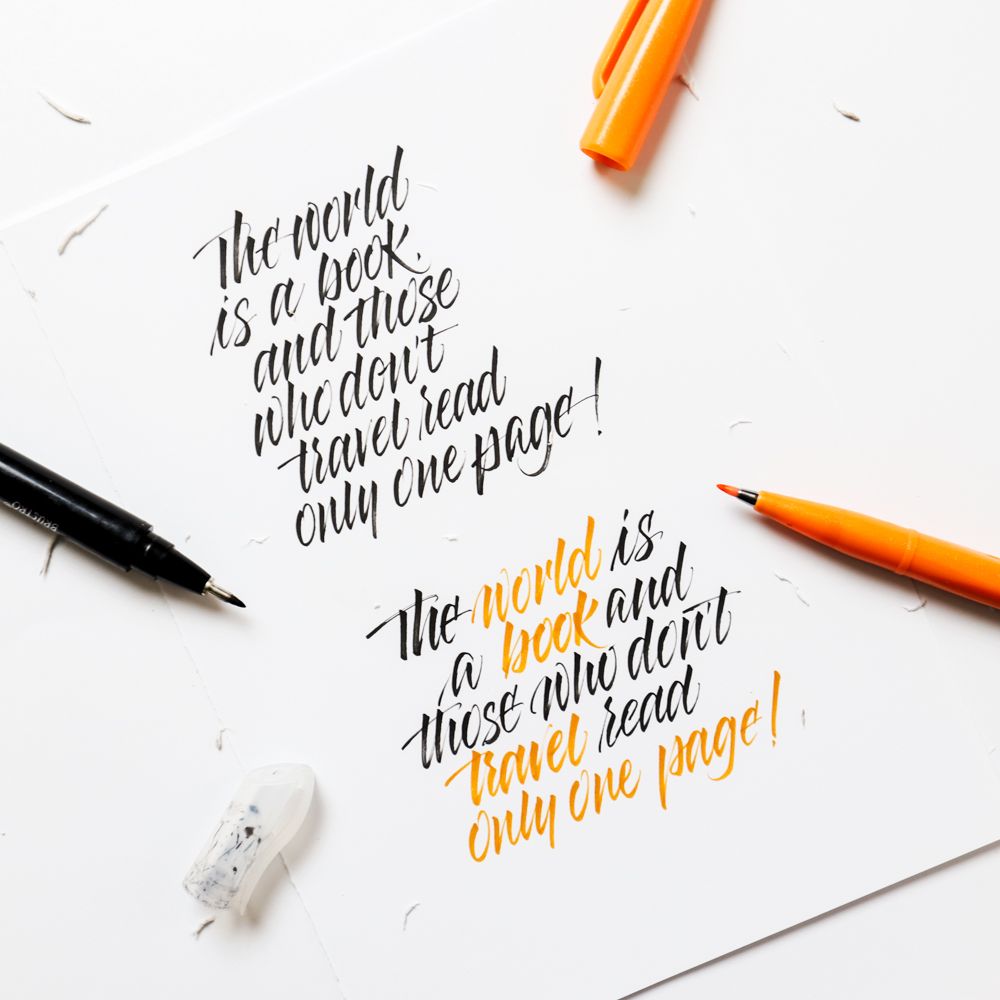 The world
is a book.
and those
who don't
travel read
only one page!
The world is
a book and
those who don't
travel read
only one page!